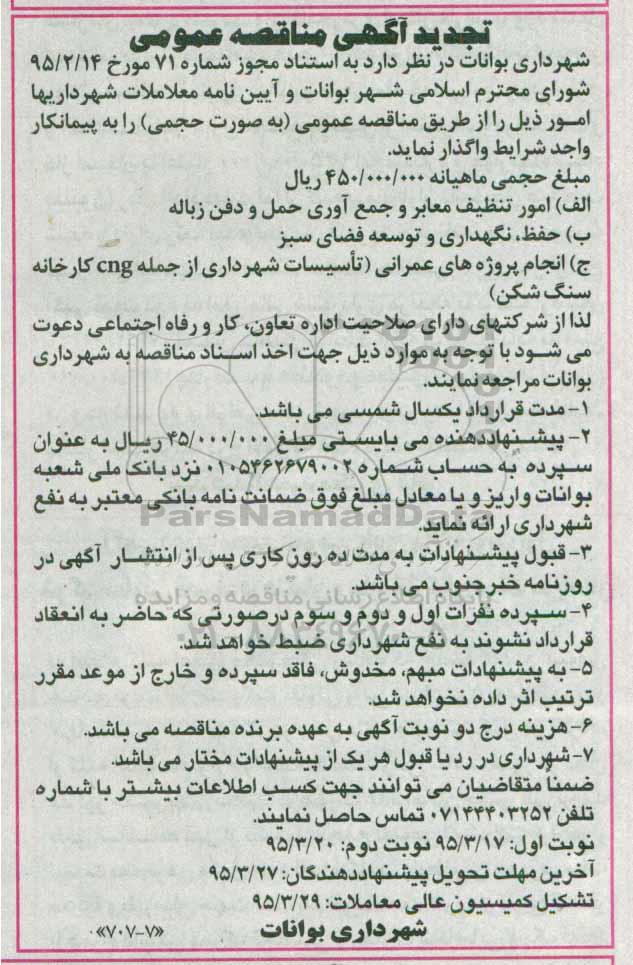 تجدید آگهی مناقصه عمومی
شهرداری بوانات در نظر دارد به استناد مجوز شماره ۷۱ مورخ ۹۵/۲/۱۴
شورای محترم اسلامی شهر بوانات و آیین نامه معلاملات شهرداریها
امور ذیل را از طریق مناقصه عمومی (به صورت حجمی) را به پیمانکار
واجد شرایط واگذار نماید.
مبلغ حجمی ماهیانه ۴۵۰/۰۰۰/۰۰۰ ریال
الف) امور تنظیف معابر و جمع آوری حمل و دفن زباله
ب) حفظ، نگهداری و توسعه فضای سبز
ج) انجام پروژه های عمرانی (تأسیسات شهرداری از جمله cng کارخانه
سنگ شکن)
لذا از شرکتهای دارای صلاحیت اداره تعاون، کار و رفاه اجتماعی دعوت
می شود با توجه به موارد ذیل جهت اخذ اسناد مناقصه به شهرداری
بوانات مراجعه نمایند.
۱- مدت قرارداد یکسال شمسی می باشد.
۲- پیشنهاددهنده می بایستی مبلغ ۴۵/۰۰۰/۰۰۰ ریال به عنوان
سپرده به حساب شماره ۰۱۰۵۴۶۲۶۷۹۰۰۲ نزد بانک ملی شعبه
بوانات واریز و یا معادل مبلغ فوق ضمانت نامه بانکی معتبر به نفع
شهرداری ارائه نماید.
ParsNamadData
۳- قبول پیشنهادات به مدت ده روز کاری پس از انتشار آگهی در
روزنامه خبرجنوب می باشد.
۴- سپرده نفرات اول و دوم و سوم درصورتی که حاضر به انعقاد
قرارداد نشوند به نفع شهرداری ضبط خواهد شد.
۵- به پیشنهادات مبهم، مخدوش، فاقد سپرده و خارج از موعد مقرر
ترتیب اثر داده نخواهد شد.
۶- هزینه درج دو نوبت آگهی به عهده برنده مناقصه می باشد.
۷- شهرداری در رد یا قبول هر یک از پیشنهادات مختار می باشد.
ضمناً متقاضیان می توانند جهت کسب اطلاعات بیشتر با شماره
تلفن ۰۷۱۴۴۴۰۳۲۵۲ تماس حاصل نمایند.
نوبت اول: ۹۵/۳/۱۷ نوبت دوم: ۹۵/۳/۲۰
آخرین مهلت تحویل پیشنهاددهندگان: ۹۵/۳/۲۷
تشکیل کمیسیون عالی معاملات: ۹۵/۳/۲۹
شهرداری بوانات
«۷۰۷-۷»